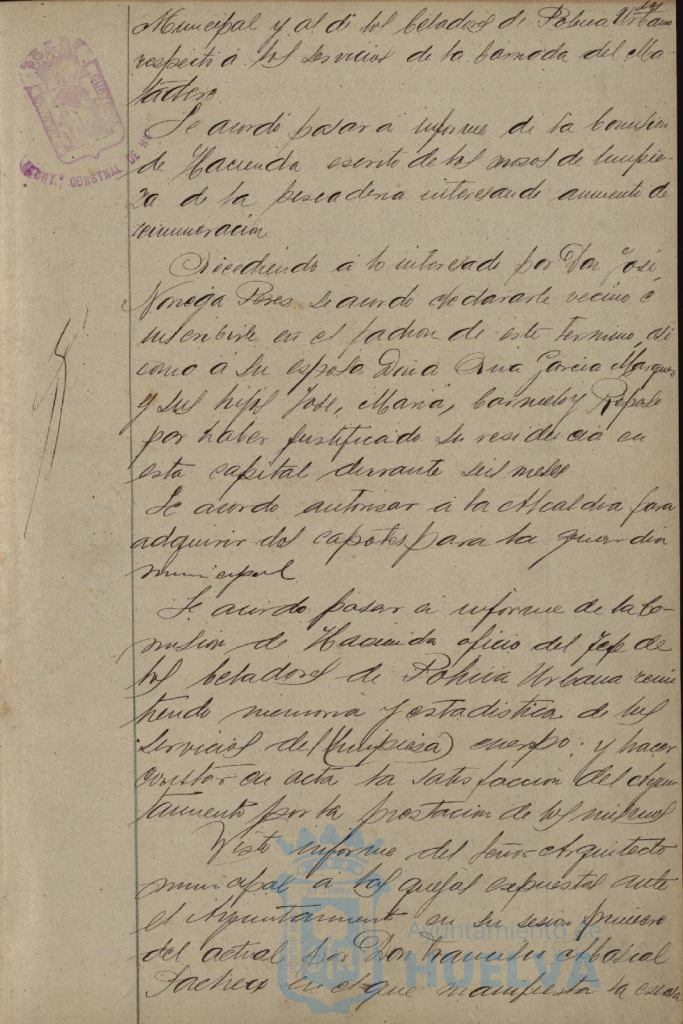 Municipal y al de los Celadores de Policia Urbana
respecto á los servicios de la barriada del Ma-
tadero
Se acordó pasar á informe de la Comision
de Hacienda escrito de los mozos de limpie-
za de la pescaderia interesando aumento de
remuneracion
Accediendo á lo interesado por Don José
Noriega Peres se acordo declararle vecino é
inscribirle en el padron de este termino, asi
como á su esposa Doña Ana Garcia Marquez
y sus hijos José, Maria, Carmelo y
por haber justificado su residencia en
esta capital durante seis meses
Se acordo autorizar á la Alcaldia para
adquirir dos capotes para la guardia
municipal
Se acordo pasar á informe de la Co-
mision de Hacienda oficio del Jefe de
los Celadores de Policia Urbana remi-
tiendo memoria y estadistica de los
servicios del (limpiesa) cuerpo; y hacer
constar en acta la satisfaccion del Ayun-
tamiento por la prestacion de los mismos
Visto informe del Señor Arquitecto
municipal á las quejas expuestas ante
el Ayuntamiento en su sesion primero
del actual por Don Francisco
Pacheco en el que manifiesta la
Ayuntamiento de
HUELVA